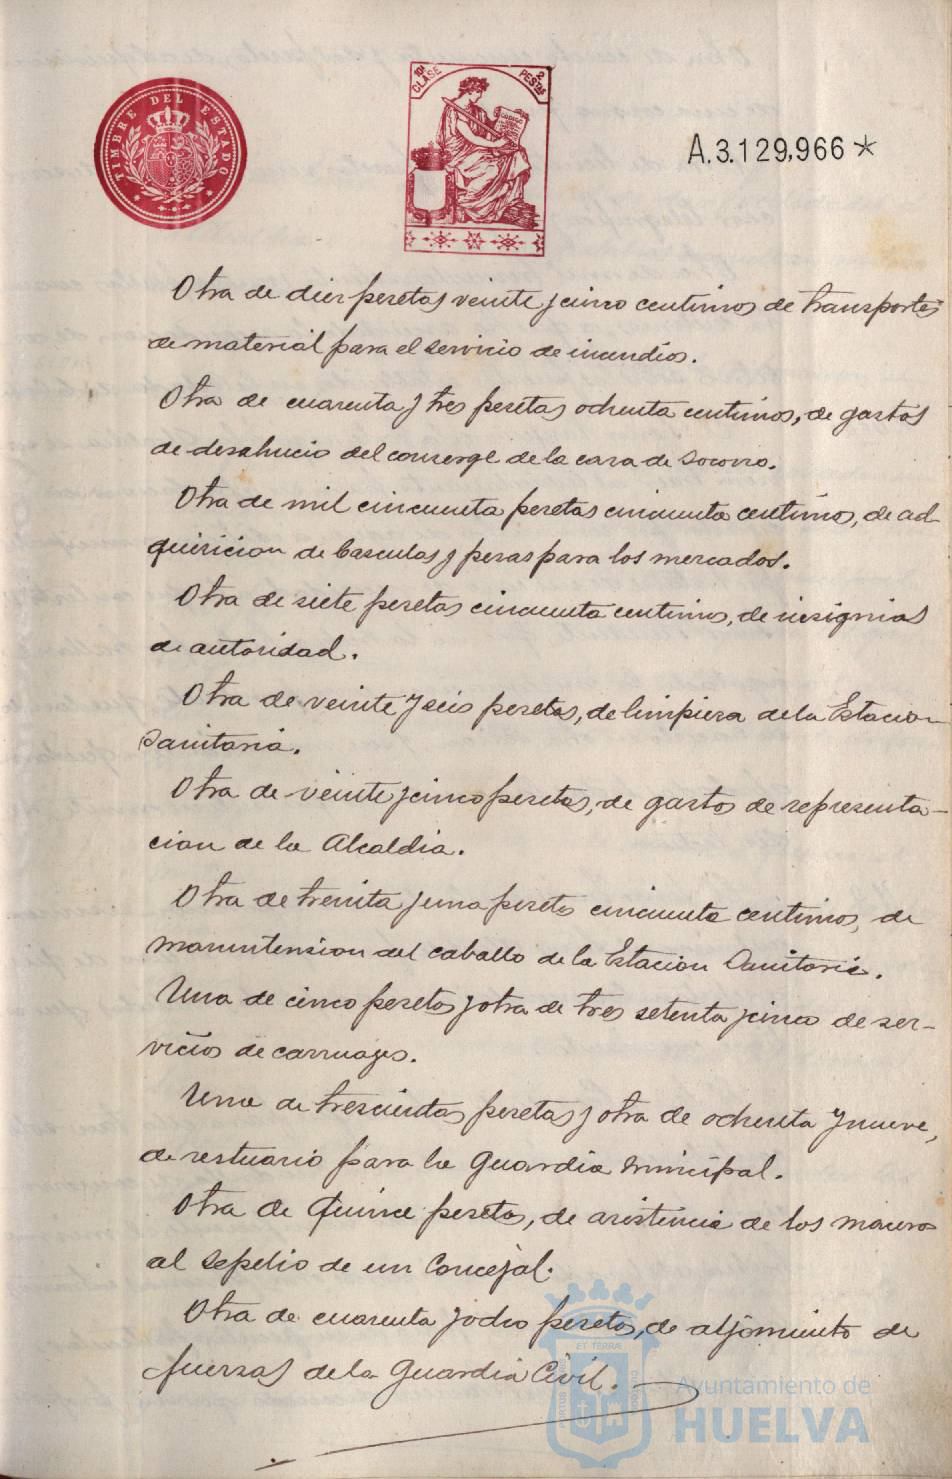 TIMBRE DEL ESTADO
10ª CLASE
2 PESTAS
A.3.129,966*
Otra de diez pesetas veinte y cinco centimos de transportes
de material para el servicio de incendios.
Otra de cuarenta y tres pesetas ochenta centimos, de gastos
de desahucio del conserge de la casa de Socorro.
Otra de mil cincuenta pesetas cincuenta centimos, de ad-
quisicion de basculas y pesas para los mercados.
Otra de siete pesetas cincuenta centimos, de insignias
de autoridad.
Otra de veinte y seis pesetas, de limpieza de la Estacion
Sanitaria.
Otra de veinte y cinco pesetas, de gastos de representa-
cion de la Alcaldia.
Otra de treinta y una pesetas cincuenta centimos, de
manuntension del caballo de la Estacion Sanitaria.
Una de cinco pesetas y otra de tres setenta y cinco de ser-
vicios de carruages.
Una de trescientas pesetas y otra de ochenta y nueve,
de vestuario para la Guardia Municipal.
Otra de Quince pesetas, de asistencia de los maceros
al sepelio de un Concejal.
Otra de cuarenta y ocho pesetas, de aljamiento de
fuerzas de la Guardia Civil.
Ayuntamiento de
HUELVA